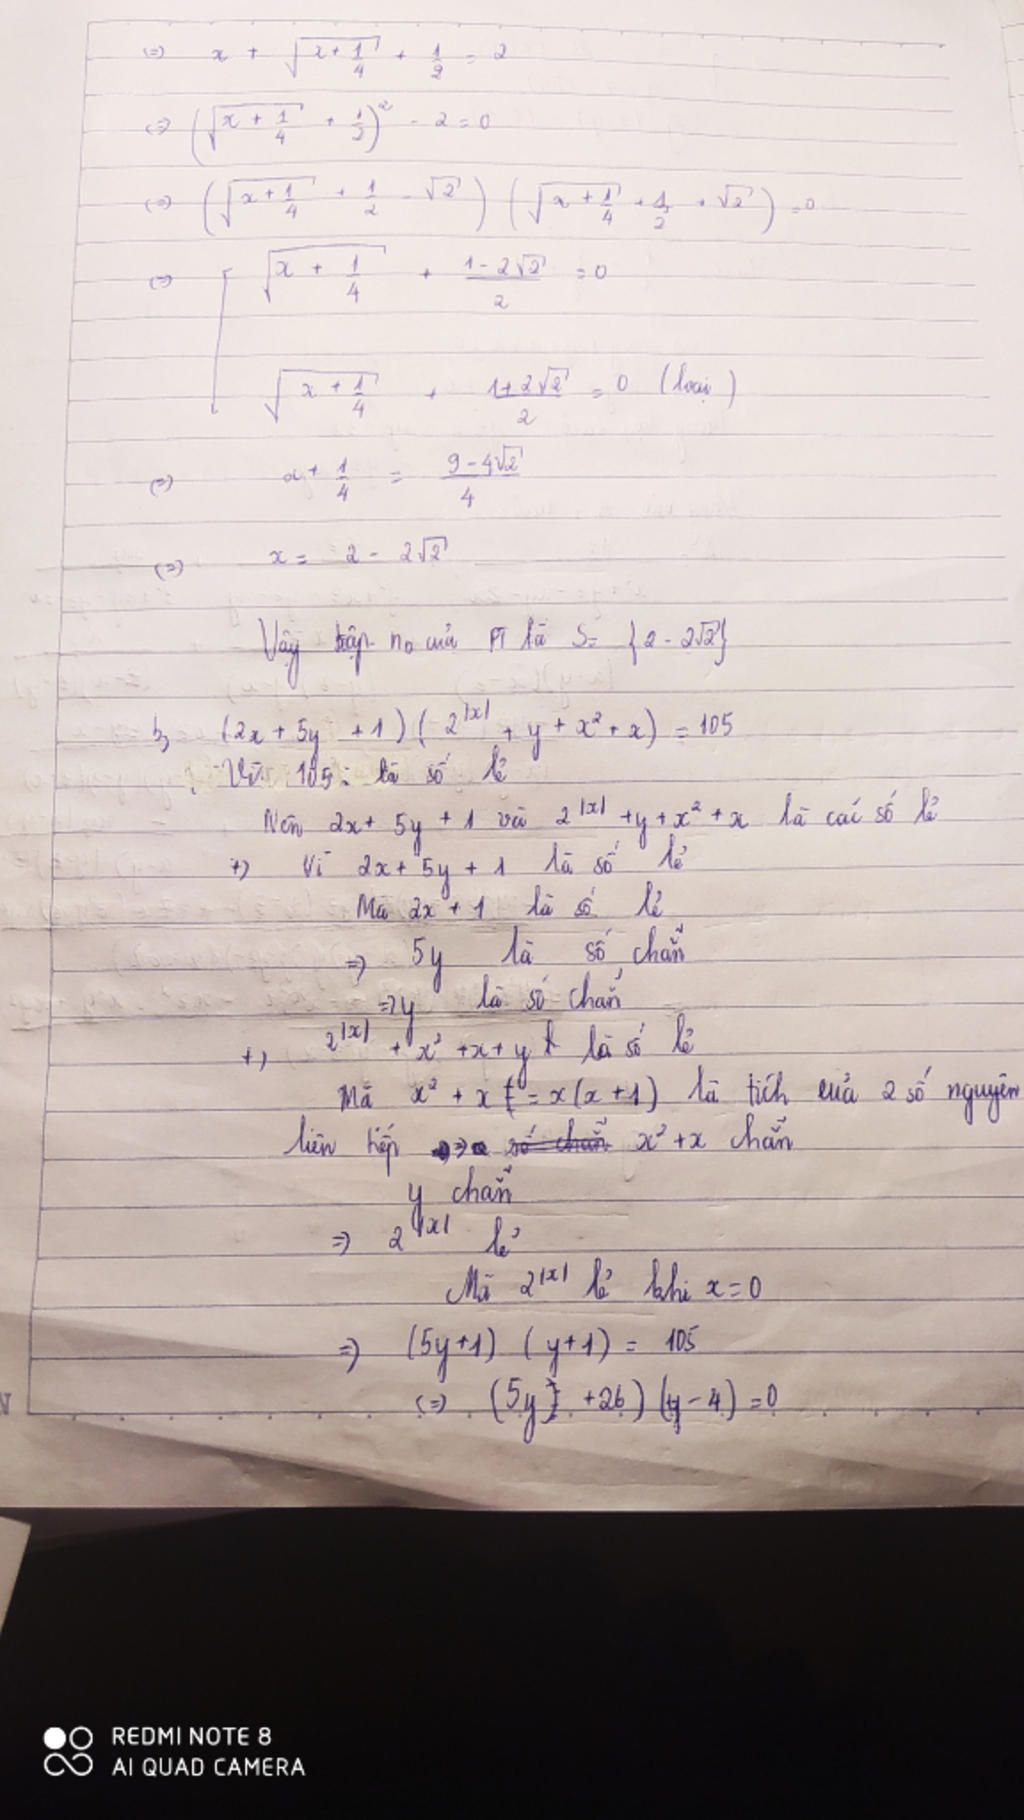 (=) x + √(x + 1/4) + 1/2 = 2
(=) (√(x + 1/4) + 1/2)² - 2 = 0
(=) (√(x + 1/4) + 1/2 - √2) (√(x + 1/4) + 1/2 + √2) = 0
(=) √(x + 1/4) + (1 - 2√2)/2 = 0
√(x + 1/4) + (1 + 2√2)/2 = 0 (loại)
(=) x + 1/4 = (9 - 4√2)/4
(=) x = 2 - 2√2
Vậy tập no của PT là S = {2 - 2√2}
b, (2x + 5y + 1)(2^|x| + y + x² + x) = 105
Vì 105 là số lẻ
Nên 2x + 5y + 1 và 2^|x| + y + x² + x là các số lẻ
+) Vì 2x + 5y + 1 là số lẻ
Mà 2x + 1 là số lẻ
=> 5y là số chẵn
=> y là số chẵn
+) 2^|x| + x² + x + y là số lẻ
Mà x² + x = x(x + 1) là tích của 2 số nguyên
liên tiếp số chẵn x² + x chẵn
y chẵn
=> 2^|x| lẻ
Mà 2^|x| lẻ khi x = 0
=> (5y + 1) (y + 1) = 105
(=) (5y + 26) (y - 4) = 0
REDMI NOTE 8
AI QUAD CAMERA